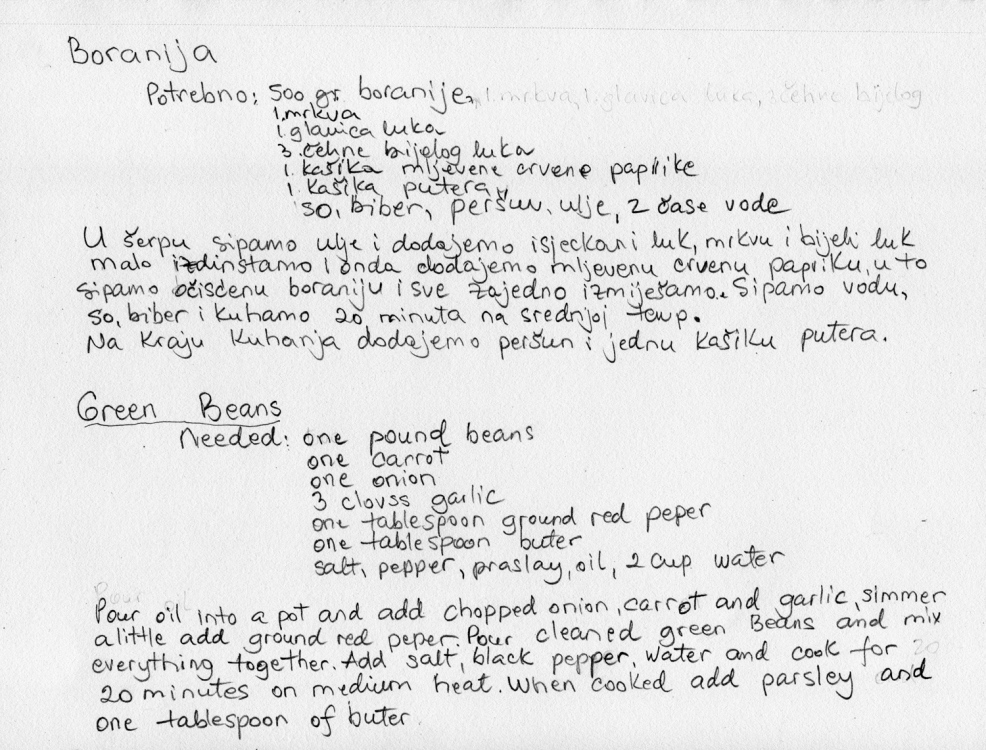 Boranija
Potrebno: 500 gr boranije, 1.mrkva, 1.glavica luka, 3čehne bijelog
1.mrkva
1.glavica luka
3.čehne bijelog luka
1.kašika mljevene crvene paprike
1.kašika putera,
so, biber, peršun, ulje, 2 čase vode
U šerpu sipamo ulje i dodajemo isjeckani luk, mrkvu i bijeli luk
malo izdinstamo i onda dodajemo mljevenu crvenu papriku, u to
sipamo očiscenu boraniju i sve zajedno izmiješamo. Sipamo vodu,
so, biber i kuhamo 20 minuta na srednjoj temp.
Na kraju kuhanja dodajemo peršun i jednu kašiku putera.
Green Beans
Needed: one pound beans
one carrot
one onion
3 clovss garlic
one tablespoon ground red peper
one tablespoon buter
salt, pepper, praslay, oil, 2 cup water
Pour oil
Pour oil into a pot and add chopped onion, carrot and garlic, simmer
a little add ground red peper. Pour cleaned green Beans and mix
everything together. Add salt, black pepper, water and cook for 20
20 minutes on medium heat. When cooked add parsley and
one tablespoon of buter.